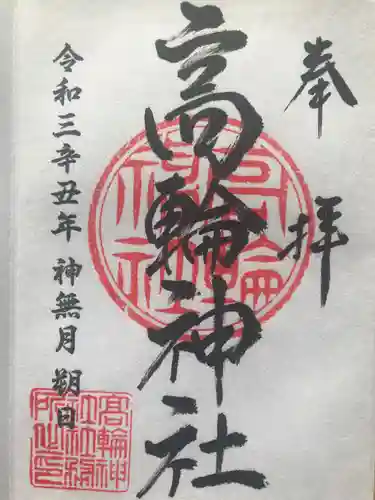 奉拝
高輪神社
令和三辛丑年 神無月 朔日
高輪神社
高輪神
社社務
所之印